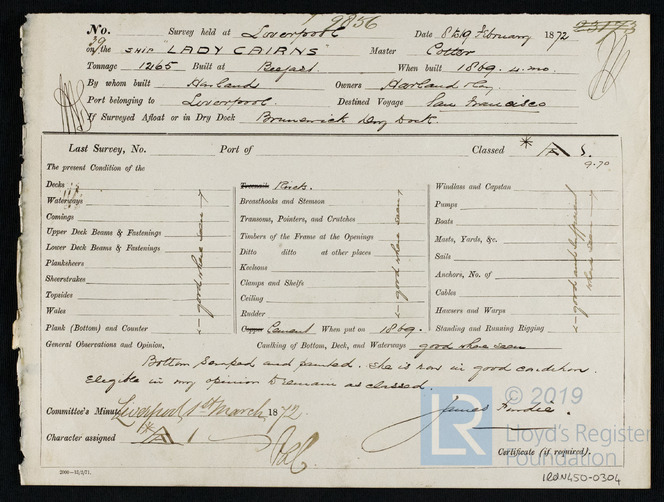 No. 9856 Survey held at Liverpool Date 8 & 19 February 1872
39 on the SHIP "LADY CAIRNS" Master Cotter
Tonnage 1265 Built at Belfast When built 1869. 4. mo.
By whom built Harland Owners Harland
Port belonging to Liverpool Destined Voyage San Francisco
If Surveyed Afloat or in Dry Dock Brunswick Dry Dock.
Last Survey, No. Port of Classed
9.70
The present Condition of the
Decks
Waterways
Comings
Upper Deck Beams & Fastenings
Lower Deck Beams & Fastenings
Planksheers
Sheerstrakes
Topsides
Wales
Plank (Bottom) and Counter
good where seen
Treenails
Breasthooks and Stemson
Transoms, Pointers, and Crutches
Timbers of the Frame at the Openings
Ditto ditto at other places
Keelsons
Clamps and Shelfs
Ceiling
Rudder
Copper Cement When put on 1869.
good where seen
Windlass and Capstan
Pumps
Boats
Masts, Yards, &c.
Sails
Anchors, No. of
Cables
Hawsers and Warps
Standing and Running Rigging
good and sufficient
where seen
General Observations and Opinion, Caulking of Bottom, Deck, and Waterways good where seen
Bottom scraped and painted. She is now in good condition.
Eligible in my opinion to remain as classed.
Committee's Minute Liverpool, 1st March, 1872.
Character assigned
Certificate (if required).
2000—13/2/71.
LR © 2019
Lloyd's Register
Foundation
IRON450-0304